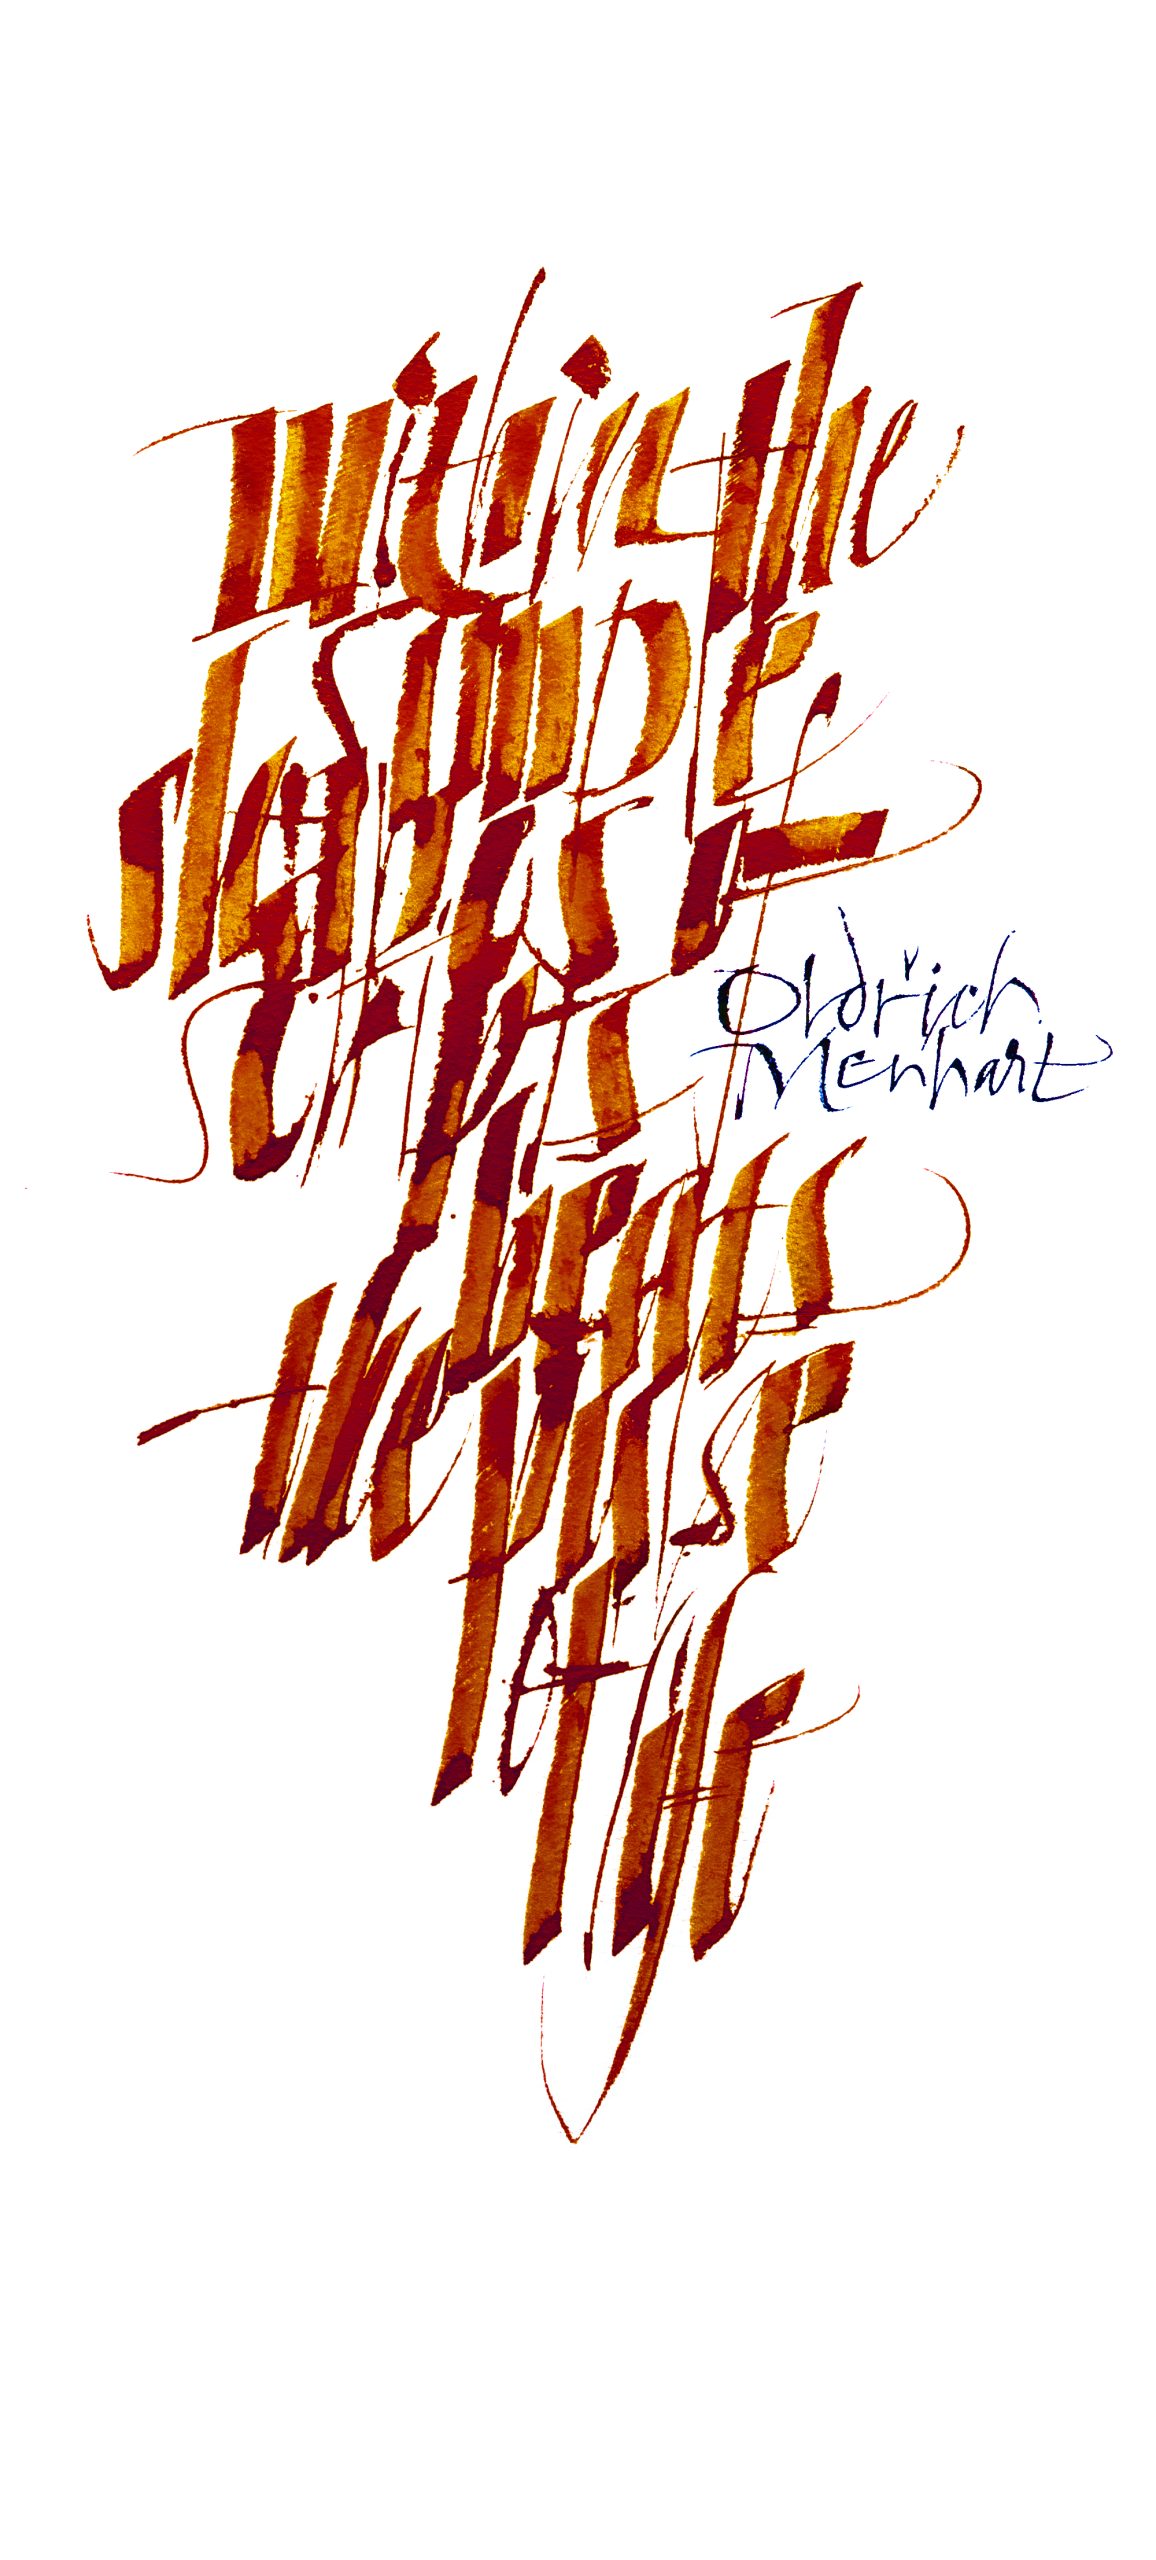 within the
simple
shapes of
scripts
Oldřich
Menhart
beats
the pulse
of life